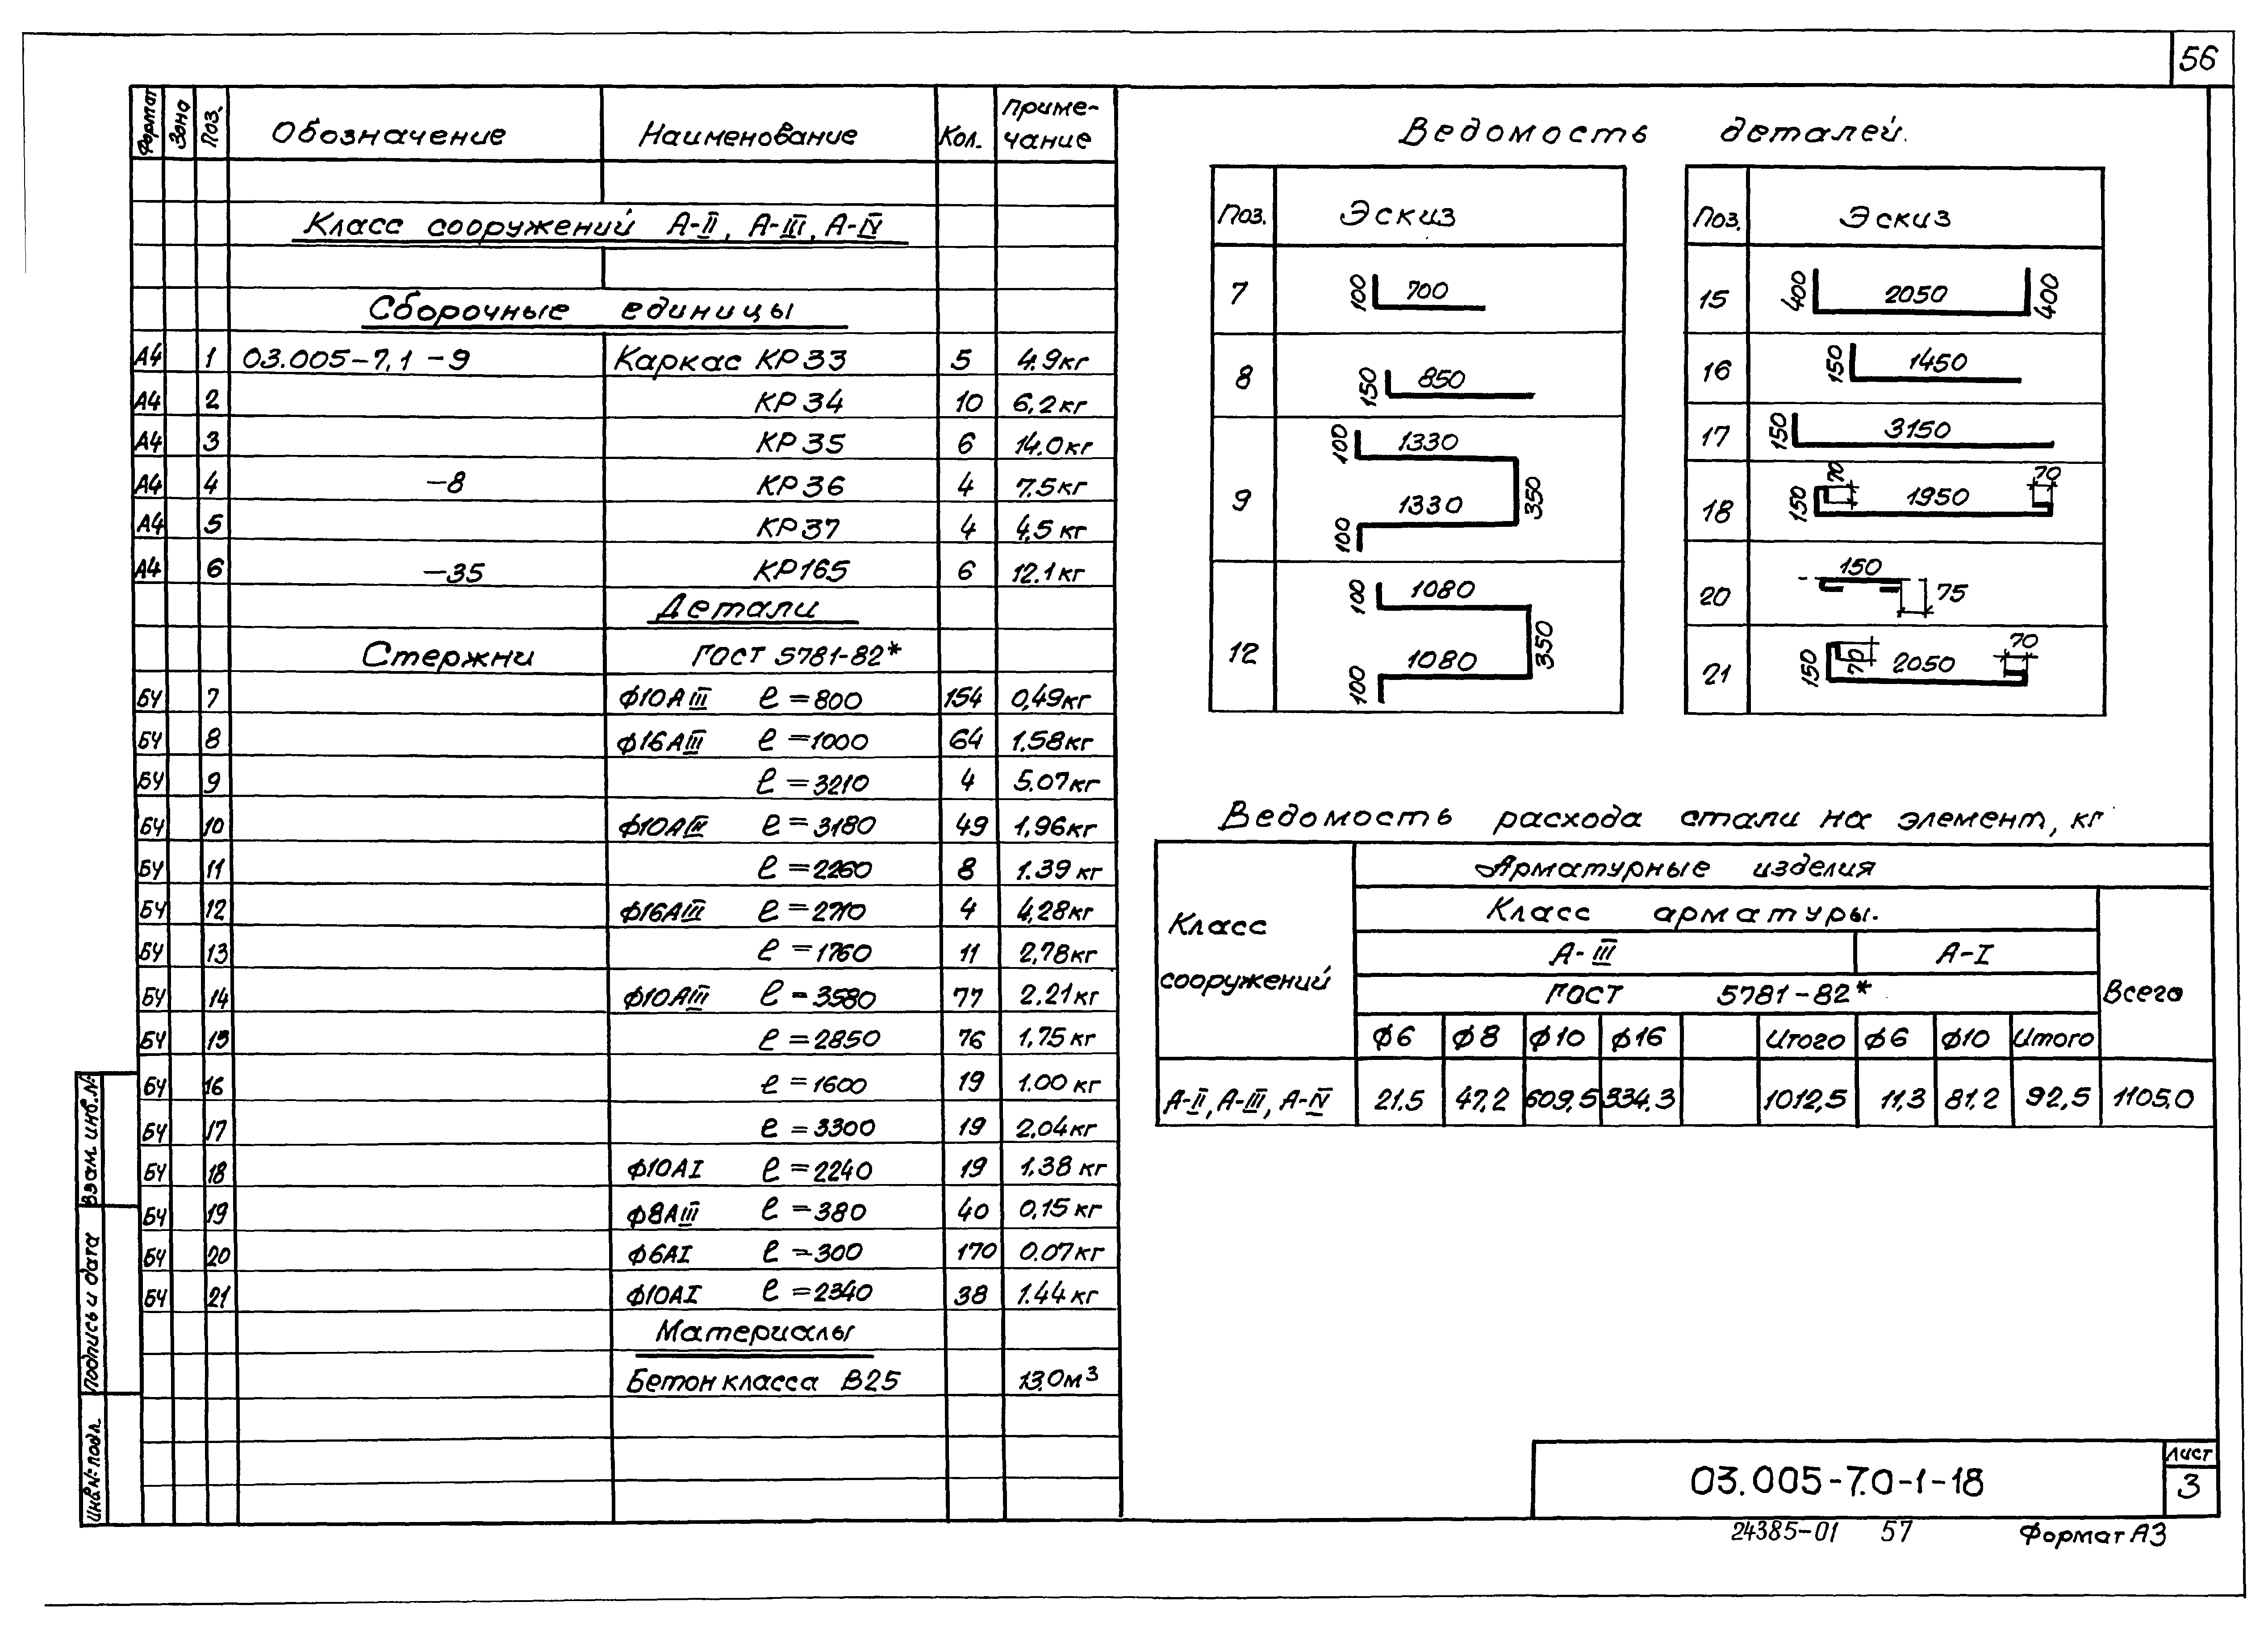 56
Формат Зона Поз. Обозначение Наименование Кол. Приме-
чание
Класс сооружений А-II, А-III, А-IV
Сборочные единицы
А4 1 03.005-7.1-9 Каркас КР33 5 4.9кг
А4 2 КР34 10 6,2кг
А4 3 КР35 6 14.0кг
А4 4 -8 КР36 4 7.5кг
А4 5 КР37 4 4,5кг
А4 6 -35 КР165 6 12.1кг
Детали
Стержни ГОСТ 5781-82*
БЧ 7 ϕ10АIII ℓ=800 154 0,49кг
БЧ 8 ϕ16АIII ℓ=1000 64 1.58кг
БЧ 9 ℓ=3210 4 5.07кг
БЧ 10 ϕ10АIII ℓ=3180 49 1,96кг
БЧ 11 ℓ=2260 8 1.39кг
БЧ 12 ϕ16АIII ℓ=2710 4 4,28кг
БЧ 13 ℓ=1760 11 2,78кг
БЧ 14 ϕ10АIII ℓ=3580 77 2.21кг
БЧ 15 ℓ=2850 76 1,75кг
БЧ 16 ℓ=1600 19 1.00кг
БЧ 17 ℓ=3300 19 2.04кг
БЧ 18 ϕ10АI ℓ=2240 19 1.38кг
БЧ 19 ϕ8АIII ℓ=380 40 0,15кг
БЧ 20 ϕ6АI ℓ=300 170 0.07кг
БЧ 21 ϕ10АI ℓ=2340 38 1.44кг
Материалы
Бетон класса В25 13.0м³
Взам. инв.№
Подпись и дата
Инв.№ подл.
Ведомость деталей.
Поз. Эскиз
7 100 700
8 150 850
9 100 1330
1330 350
100
12 100 1080
1080 350
100
Поз. Эскиз
15 400 2050 400
16 150 1450
17 150 3150
18 150 70 1950 70
20 150 75
21 150 70 2050 70
Ведомость расхода стали на элемент, кг
Класс
сооружений
Арматурные изделия
Класс арматуры.
А-III А-I
ГОСТ 5781-82*
Всего
ϕ6 ϕ8 ϕ10 ϕ16 Итого ϕ6 ϕ10 Итого
А-II, А-III, А-IV 21.5 47,2 609,5 334,3 1012,5 11,3 81.2 92,5 1105.0
03.005-7.0-1-18
Лист
3
24385-01 57 Формат А3